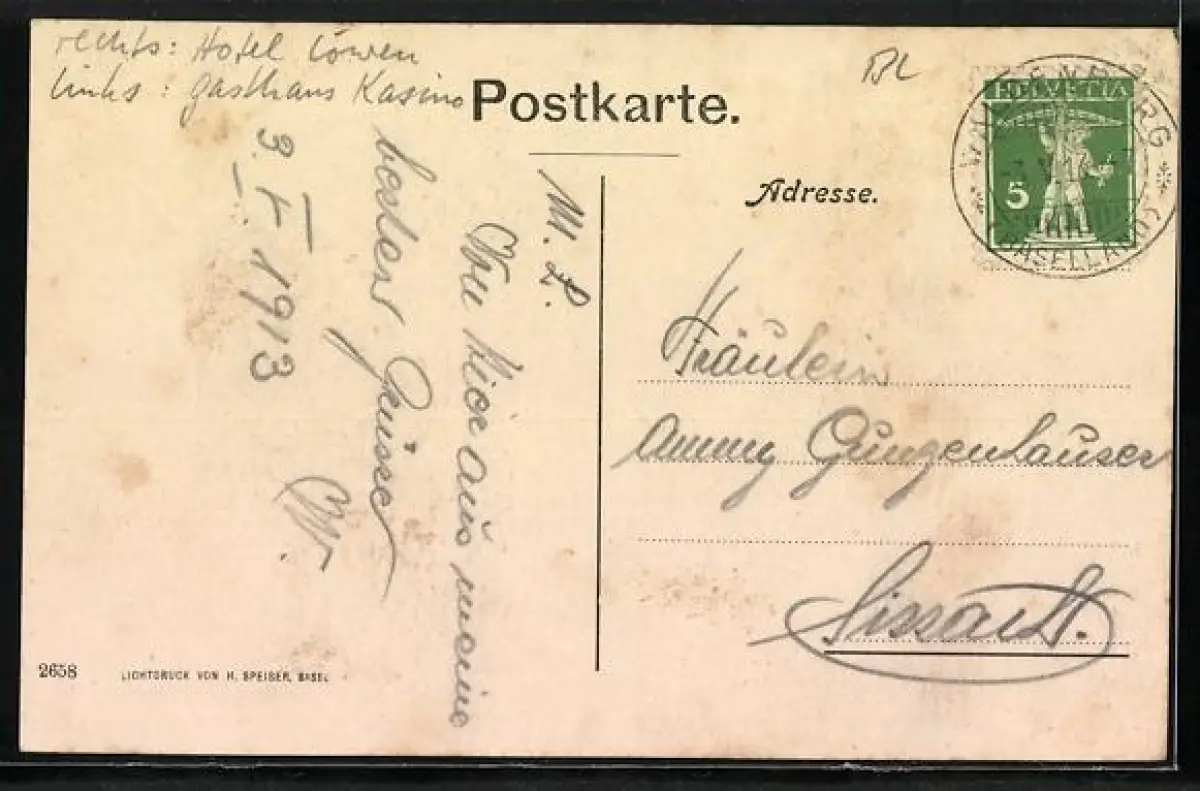 rechts: Hotel Löwen
links: Gasthaus Kasino
BL
Postkarte.
Adresse.
HELVETIA
5
WALDENBURG
(BASELLAND)
M. L.
Von hier aus meine
besten Grüsse
W.
3. V. 1913
Fräulein
Anny Gungenhauser
Sissach.
2658
LICHTDRUCK VON H. SPEISER, BASEL